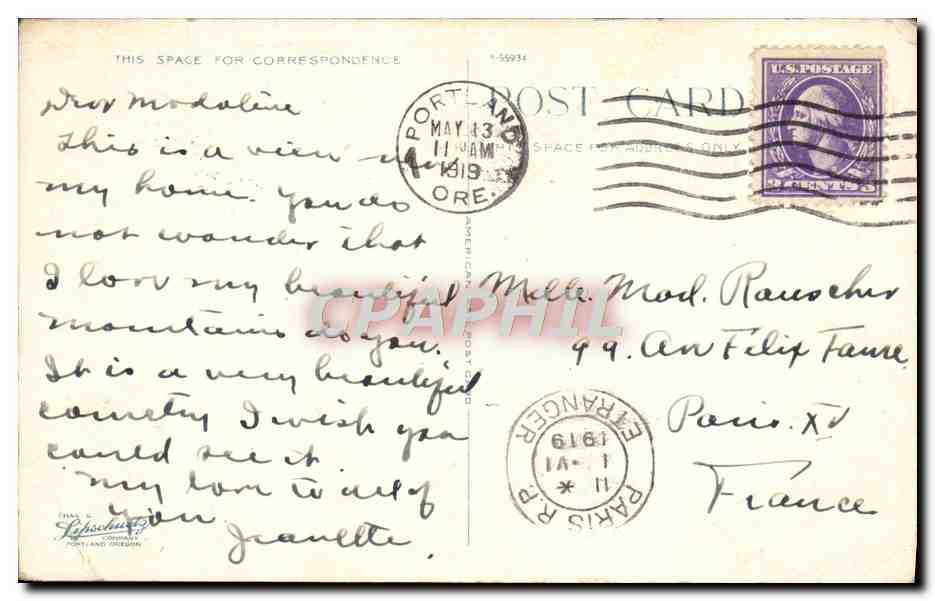 THIS SPACE FOR CORRESPONDENCE
Dear Madaline
This is a view near
my home. You do
not wonder that
I love my beautiful
mountains do you.
It is a very beautiful
country I wish you
could see it
My love to all of
you
Jeanette.
CHAS. S.
Lipschuetz
COMPANY
PORTLAND OREGON
AMERICAN POST CARD
PORTLAND
MAY 13
11 AM
1919
ORE.
POST CARD
THIS SPACE FOR ADDRESS ONLY
U.S. POSTAGE
3 CENTS 3
Mdlle. Mad. Rauscher
99. Av Felix Faure
Paris. XV
France
PARIS R.P. ETRANGER
11 *
1 -VI
1919
CPAPHIL